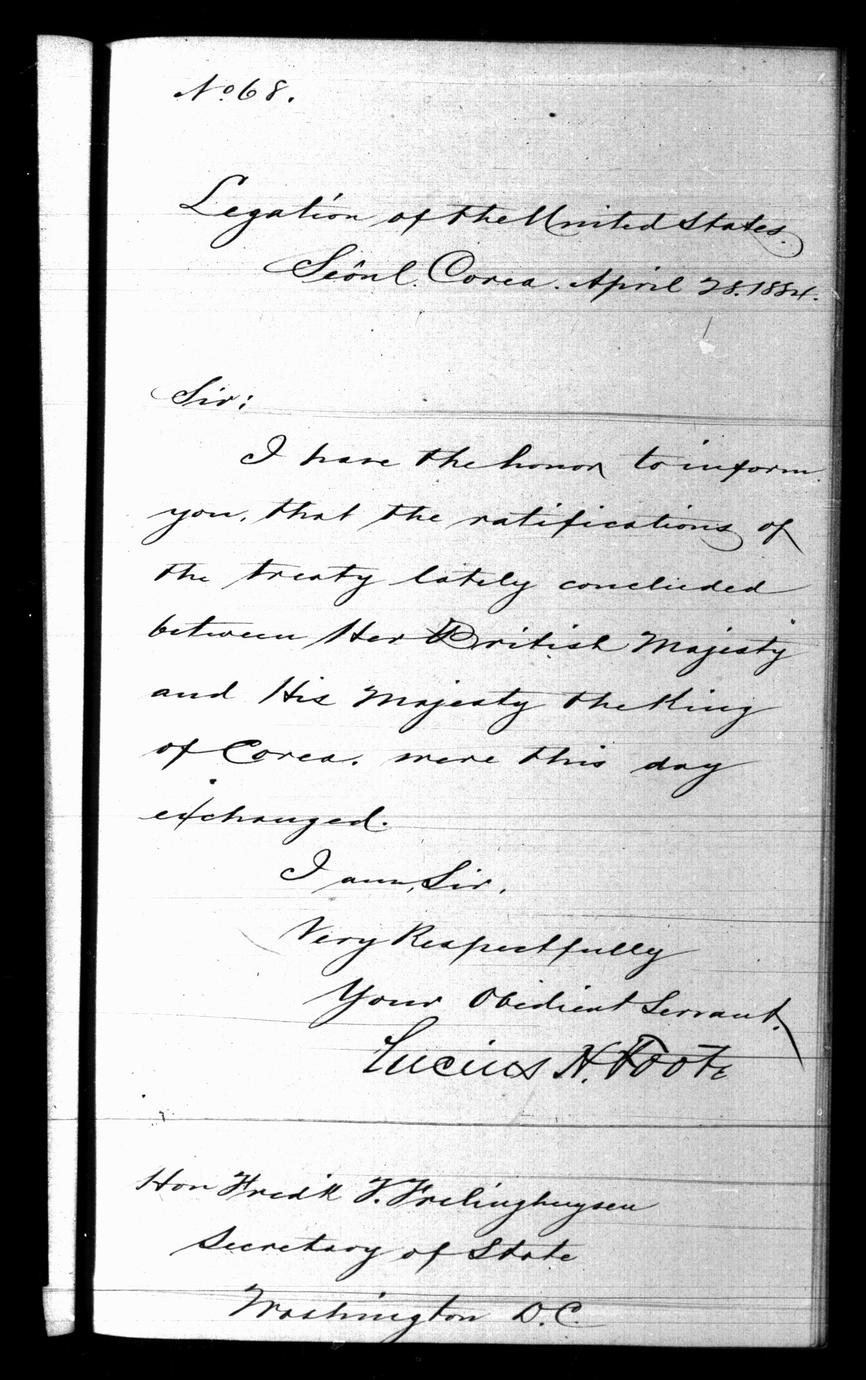 No 68.
Legation of the United States.
Seoul. Corea. April 28. 1884.
Sir:
I have the honor to inform
you, that the ratifications of
the treaty lately concluded
between Her British Majesty
and His Majesty the King
of Corea. were this day
exchanged.
I am, Sir,
Very Respectfully
Your Obedient Servant,
Lucius H. Foote
Hon Fredk T. Frelinghuysen
Secretary of State
Washington D.C.